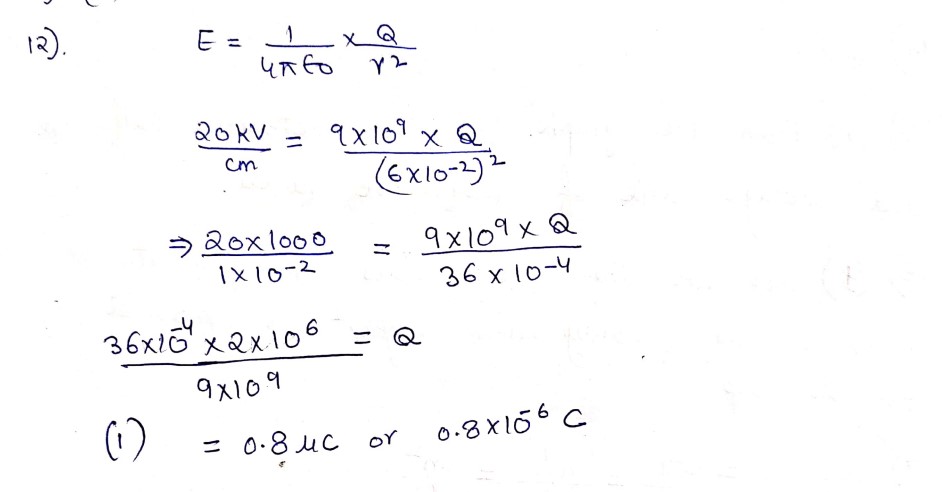 12). E = 1/4π€0 × Q/r2
20kV/cm = 9×10^9 × Q/(6×10^-2)^2
⇒ 20×1000/1×10^-2 = 9×10^9 × Q/36 × 10^-4
36×10^-4 × 2×10^6/9×10^9 = Q
(1) = 0.8 μC or 0.8×10^-6 C